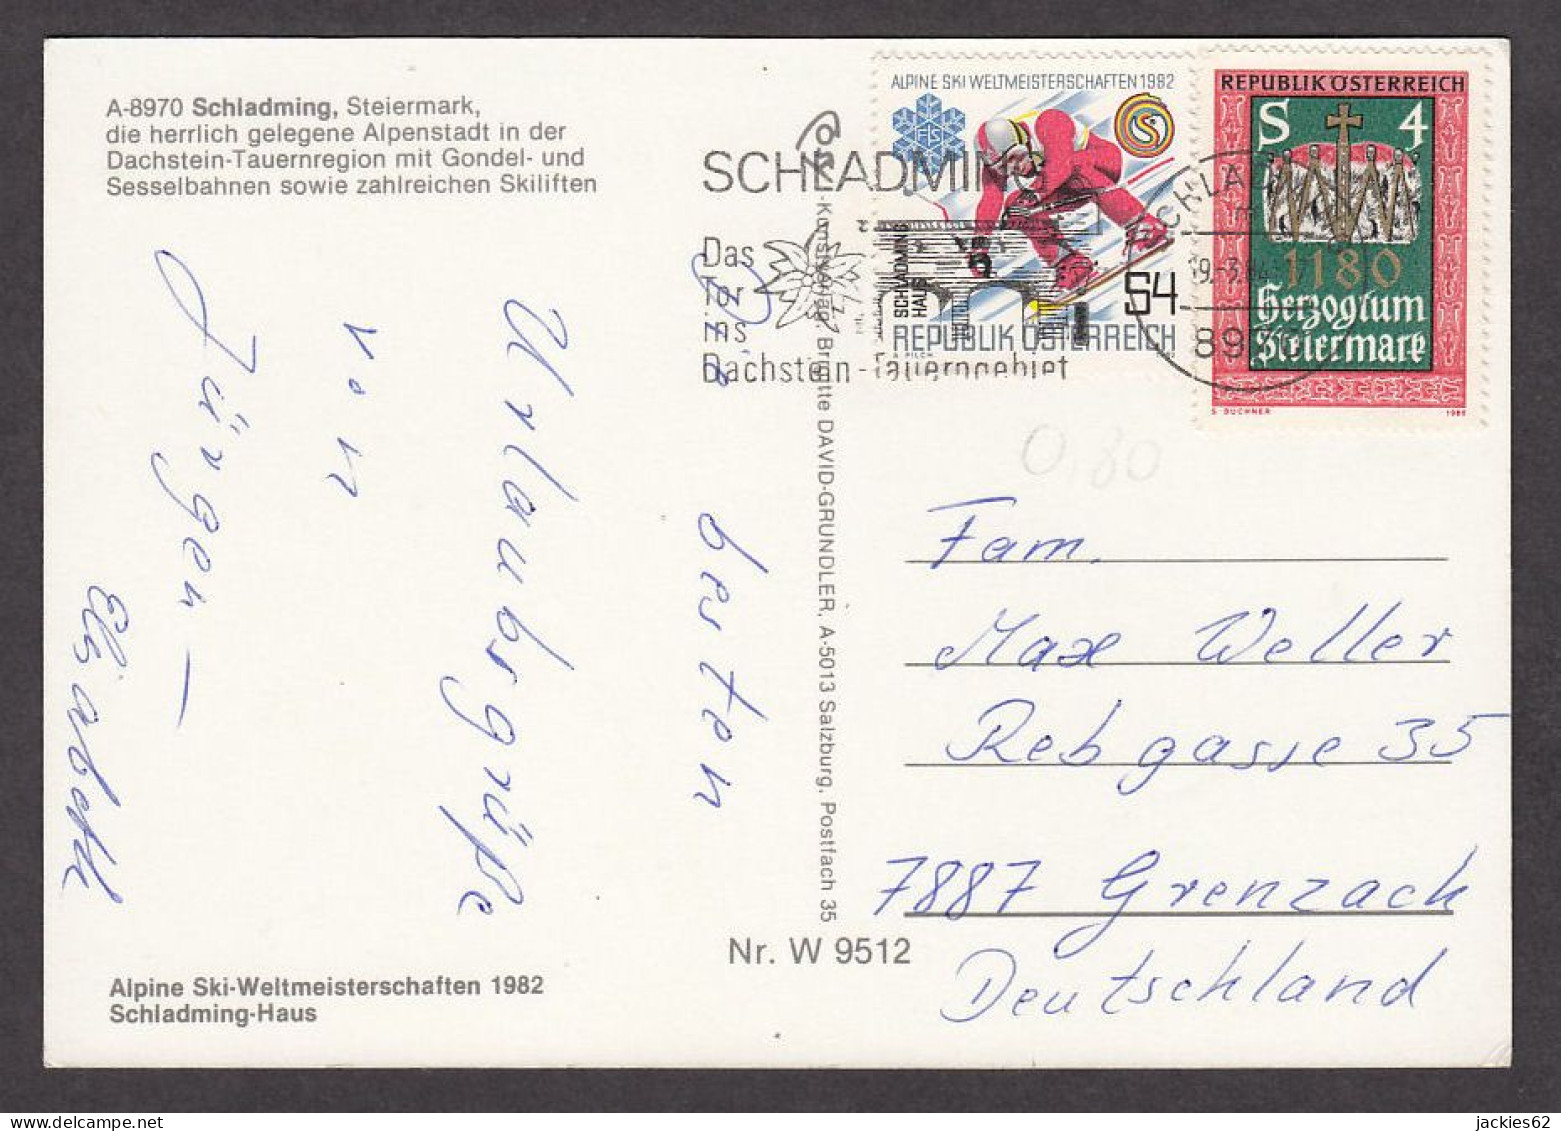 A-8970 Schladming, Steiermark,
die herrlich gelegene Alpenstadt in der
Dachstein-Tauernregion mit Gondel- und
Sesselbahnen sowie zahlreichen Skiliften
besten
Urlaubsgrüße
von
Jürgen –
Elisabeth
Alpine Ski-Weltmeisterschaften 1982
Schladming-Haus
Brigitte DAVID-GRUNDLER, A-5013 Salzburg, Postfach 35
Nr. W 9512
SCHLADMING
Das
Tor
ins
Dachstein-Tauerngebiet
SCHLADMING
HAUS
ALPINE SKI WELTMEISTERSCHAFTEN 1982
FIS
S4
REPUBLIK ÖSTERREICH
A. PILCH
REPUBLIK ÖSTERREICH
S 4
1180
Herzogtum
Steiermark
S. BUCHNER 1980
0,80
Fam.
Max Weller
Rebgasse 35
7887 Grenzach
Deutschland
jackies62